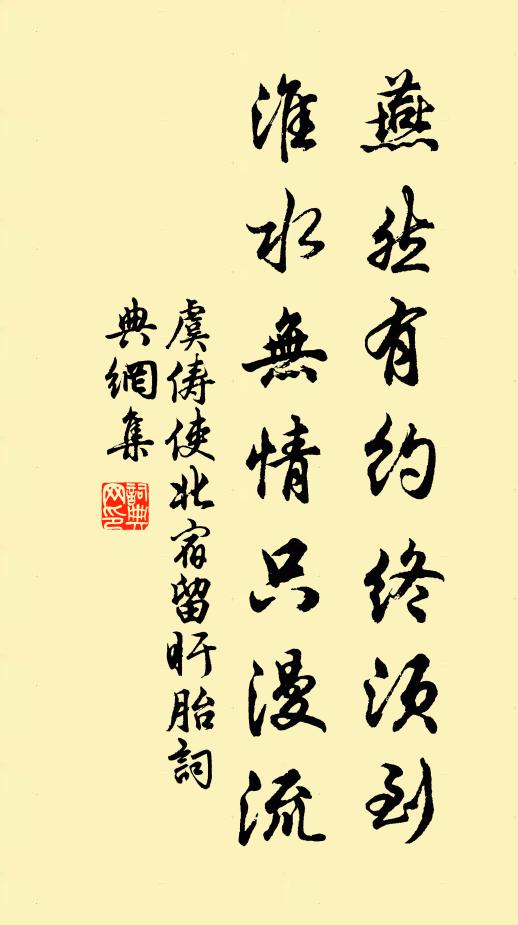 燕然有約終須到
淮水無情只漫流
虞儔使北宿留盱胎詞
典網集
詞典
网印